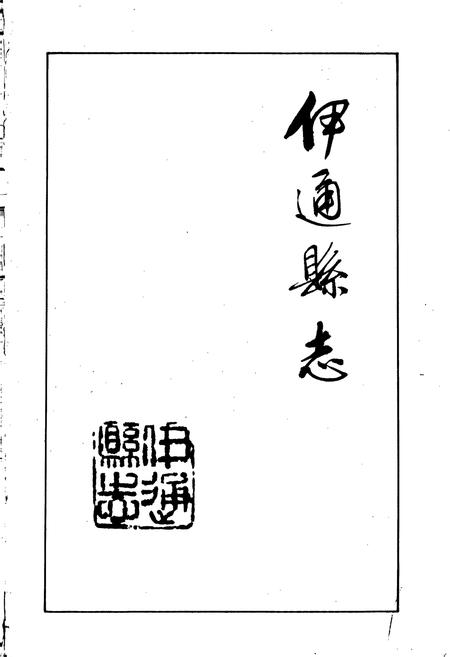 伊通縣志
伊通
縣志